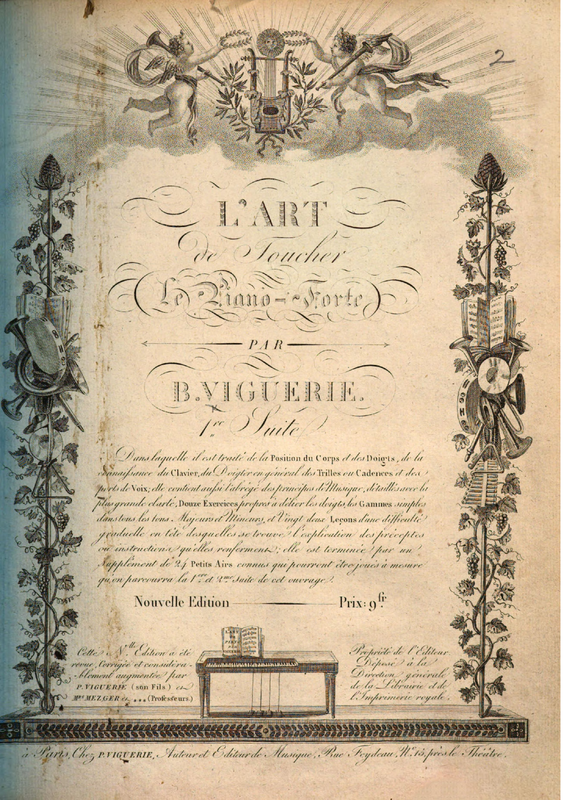 2
L'ART
de Toucher
Le Piano-Forte
PAR
B. VIGUERIE.
1.re Suite
Dans laquelle il est traité de la Position du Corps et des Doigts, de la
connaissance du Clavier, du Doigter en général des Trilles ou Cadences et des
ports de Voix; elle contient aussi l'abrégé des principes de Musique, détaillés avec la
plus grande clarté, Douze Exercices propres à délier les doigts, les Gammes simples
dans tous les tons, Majeurs et Mineurs, et Vingt deux Leçons d'une difficulté
graduelle en tête desquelles se trouve l'explication des préceptes
ou instructions qu'elles renferment; elle est terminée par un
Supplément de 24 Petits Airs connus qui pourront être joués à mesure
qu'on parcourra la 1.ere et 2.me Suite de cet ouvrage.
Nouvelle Edition Prix: 9fr.
Cette N.lle Edition a été
revue, Corrigée et considéra-
blement augmentée par
P. VIGUERIE (son Fils) et
M.rs METZGER et ... (Professeurs.)
Propriété de l'Editeur
Déposé à la
Direction générale
de la Librairie et de
l'Imprimerie royale.
à Paris, Chez P. VIGUERIE, Auteur et Editeur de Musique, Rue Feydeau, N.º 15, près le Théâtre.